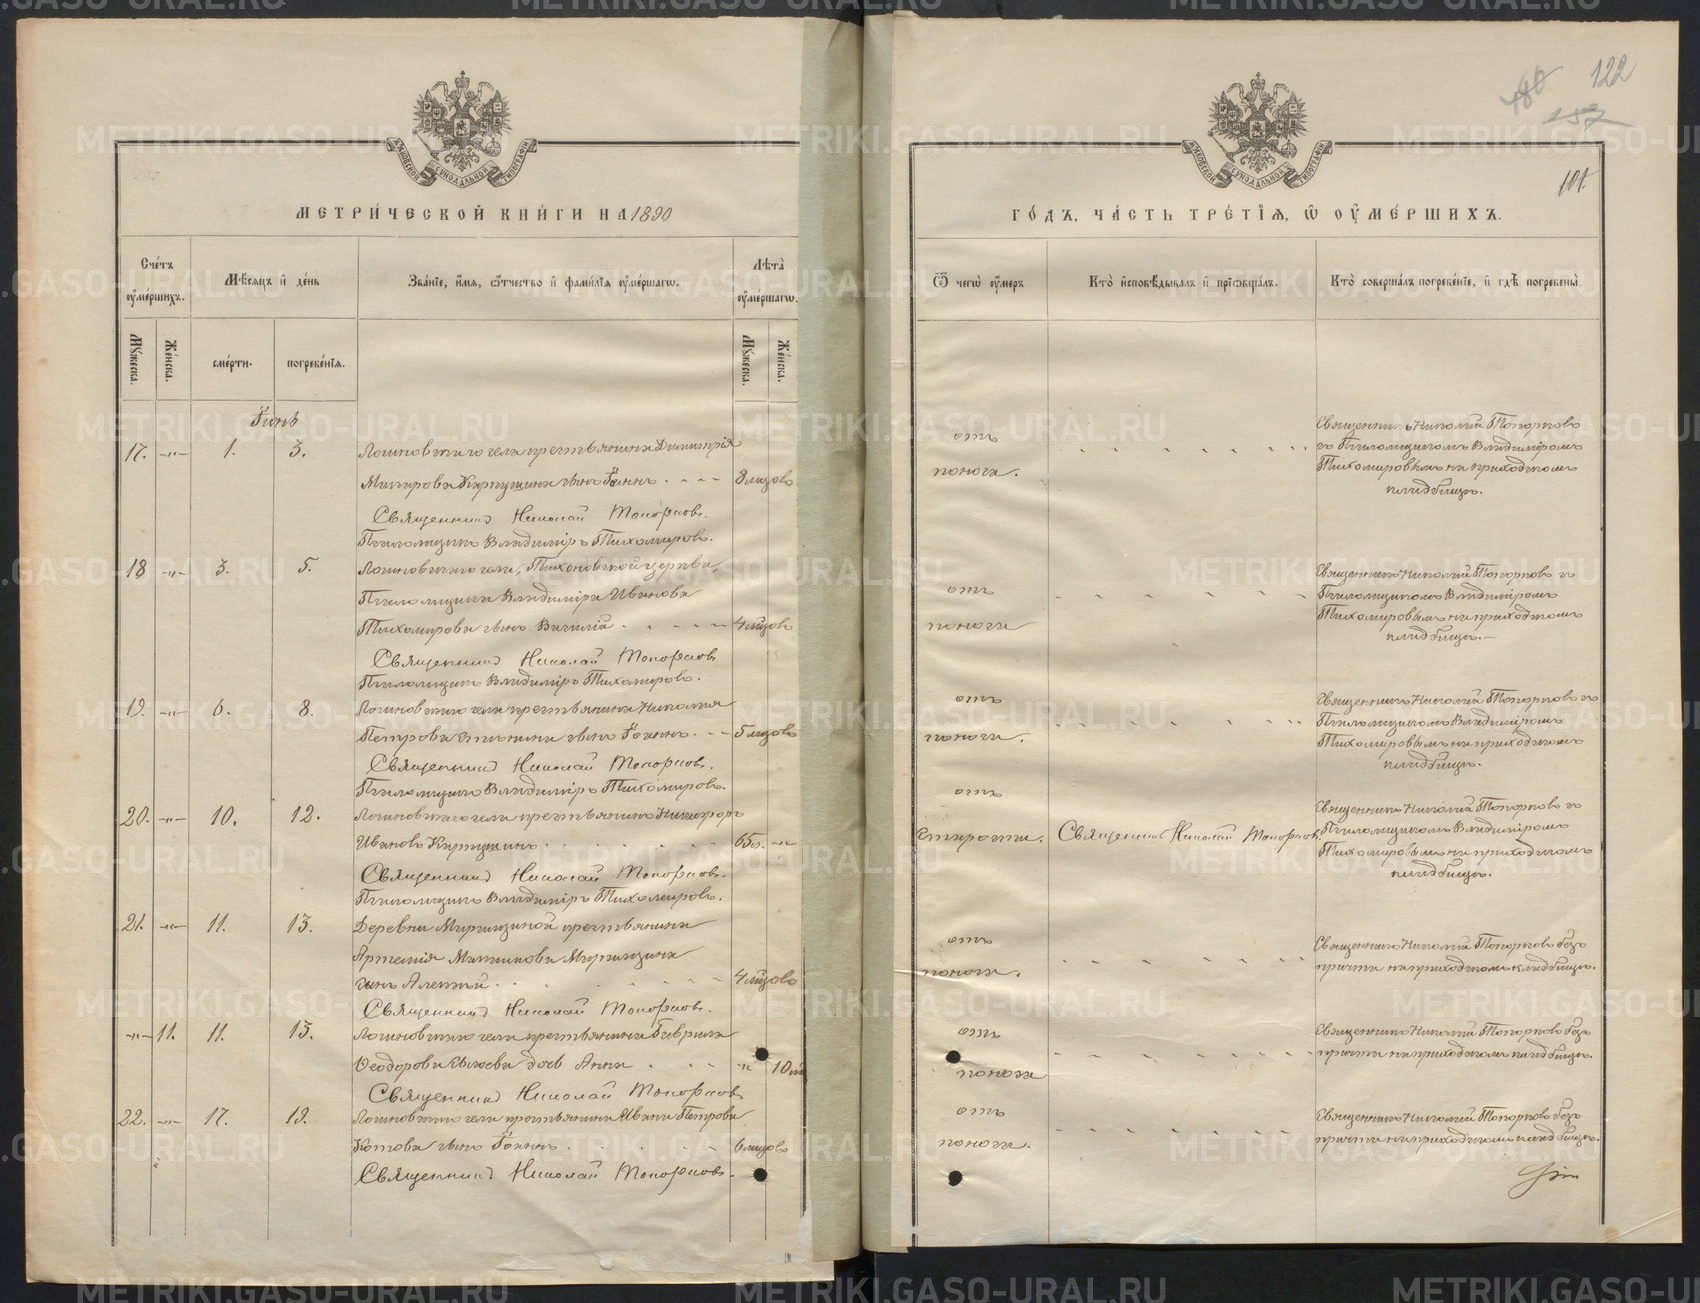 МЕТРИ́ЧЕСКОЙ КНИ́ГИ НА 1890
Счётъ оўме́ршихъ.
Мѣ́сѧцъ и҆ де́нь
Зва́нїе, и҆́мѧ, ѻ҆́тчество и҆ фамі́лїѧ оўме́ршагѡ.
Лѣта̀ оўме́ршагѡ.
Мꙋ́жеска.
Же́нска.
сме́рти.
погребе́нїѧ.
Мꙋ́жеска.
Же́нска.
Іюнь
17. -„- 1. 3. Логиновскаго села крестьянина Димитрія
Карпушина сынъ Іоаннъ 8 мѣсяцовъ
Священникъ Николай Топорковъ.
Псаломщикъ Владиміръ Тихомировъ.
18 -„- 3. 5. Логиновскаго села, Тихоновской церкви,
Псаломщика Владиміра Иванова
Тихомирова сынъ Василій 4 мѣсяцовъ
Священникъ Николай Топорковъ
Псаломщикъ Владиміръ Тихомировъ.
19. -„- 6. 8. Логиновскаго села крестьянина Николая
Петрова сынъ Іоаннъ 5 мѣсяцовъ
Священникъ Николай Топорковъ.
Псаломщикъ Владиміръ Тихомировъ.
20. -„- 10. 12. Логиновскаго села крестьянинъ Никифоръ
Ивановъ Карпушинъ 65 л. -„-
Священникъ Николай Топорковъ.
Псаломщикъ Владиміръ Тихомировъ.
21. -„- 11. 13. Деревни крестьянина
Артемія
сынъ Алексѣй 4 мѣсяцовъ
Священникъ Николай Топорковъ.
-„- 11. 11. 13. Логиновскаго села крестьянина Гавріила
Ѳеодорова дочь Анна „ 10
Священникъ Николай Топорковъ
22. -„- 17. 19. Логиновскаго села крестьянина Ивана Петрова
Котова сынъ Іоаннъ 6 мѣсяцовъ
Священникъ Николай Топорковъ.
122
157
101.
ГО́ДЪ, ЧА́СТЬ ТРЕ́ТЇѦ, Ѡ҆ ОУМЕ́РШИХЪ.
Ѿ чегѡ̀ оў́меръ
Кто̀ и҆сповѣ́дывалъ и҆ прїѡбща́лъ.
Кто̀ соверша́лъ погребе́нїе, и҆ гдѣ̀ погребены̀.
отъ
поноса.
Священникъ Николай Топорковъ
съ Псаломщикомъ Владиміромъ
Тихомировымъ на приходскомъ
кладбищѣ.
отъ
поноса
Священникъ Николай Топорковъ съ
Псаломщикомъ Владиміромъ
Тихомировымъ на приходскомъ
кладбищѣ.
отъ
поноса.
Священникъ Николай Топорковъ съ
Псаломщикомъ Владиміромъ
Тихомировымъ на приходскомъ
кладбищѣ.
отъ
старости.
Священникъ Николай Топорковъ
Священникъ Николай Топорковъ съ
Псаломщикомъ Владиміромъ
Тихомировымъ на приходскомъ
кладбищѣ.
отъ
поноса.
Священникъ Николай Топорковъ безъ
причта на приходскомъ кладбищѣ.
отъ
поноса
Священникъ Николай Топорковъ безъ
причта на приходскомъ кладбищѣ.
отъ
поноса.
Священникъ Николай Топорковъ безъ
причта на приходскомъ кладбищѣ.
METRIKI.GASO-URAL.RU